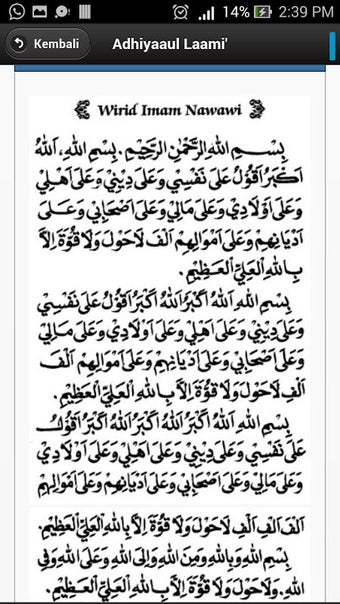 14% 2:39 PM
Kembali
Adhiyaaul Laami'
Wirid Imam Nawawi
بِسْمِ اللهِ الرَّحْمٰنِ الرَّحِيْمِ. بِسْمِ اللهِ، اَللهُ
اَكْبَرُ اَقُوْلُ عَلَى نَفْسِيْ وَعَلَى دِيْنِيْ وَعَلَى اَهْلِيْ
وَعَلَى اَوْلَادِيْ وَعَلَى مَالِيْ وَعَلَى اَصْحَابِيْ وَعَلَى
اَدْيَانِهِمْ وَعَلَى اَمْوَالِهِمْ اَلْفَ لَاحَوْلَ وَلَا قُوَّةَ اِلاَّ
بِاللهِ الْعَلِيِّ الْعَظِيْمِ.
بِسْمِ اللهِ اَللهُ اَكْبَرُ اَللهُ اَكْبَرُ اَقُوْلُ عَلَى نَفْسِيْ
وَعَلَى دِيْنِيْ وَعَلَى اَهْلِيْ وَعَلَى اَوْلَادِيْ وَعَلَى مَالِيْ
وَعَلَى اَصْحَابِيْ وَعَلَى اَدْيَانِهِمْ وَعَلَى اَمْوَالِهِمْ اَلْفَ
اَلْفِ لَاحَوْلَ وَلَا قُوَّةَ اِلاَّ بِاللهِ الْعَلِيِّ الْعَظِيْمِ.
بِسْمِ اللهِ اَللهُ اَكْبَرُ اَللهُ اَكْبَرُ اَللهُ اَكْبَرُ اَقُوْلُ
عَلَى نَفْسِيْ وَعَلَى دِيْنِيْ وَعَلَى اَهْلِيْ وَعَلَى اَوْلَادِيْ
وَعَلَى مَالِيْ وَعَلَى اَصْحَابِيْ وَعَلَى اَدْيَانِهِمْ وَعَلَى اَمْوَالِهِمْ
اَلْفَ اَلْفِ اَلْفِ لَاحَوْلَ وَلَا قُوَّةَ اِلاَّ بِاللهِ الْعَلِيِّ الْعَظِيْمِ.
بِسْمِ اللهِ وَبِاللهِ وَمِنَ اللهِ وَاِلَى اللهِ وَعَلَى اللهِ وَفِي
اللهِ. وَلَاحَوْلَ وَلَا قُوَّةَ اِلاَّ بِاللهِ الْعَلِيِّ الْعَظِيْمِ.